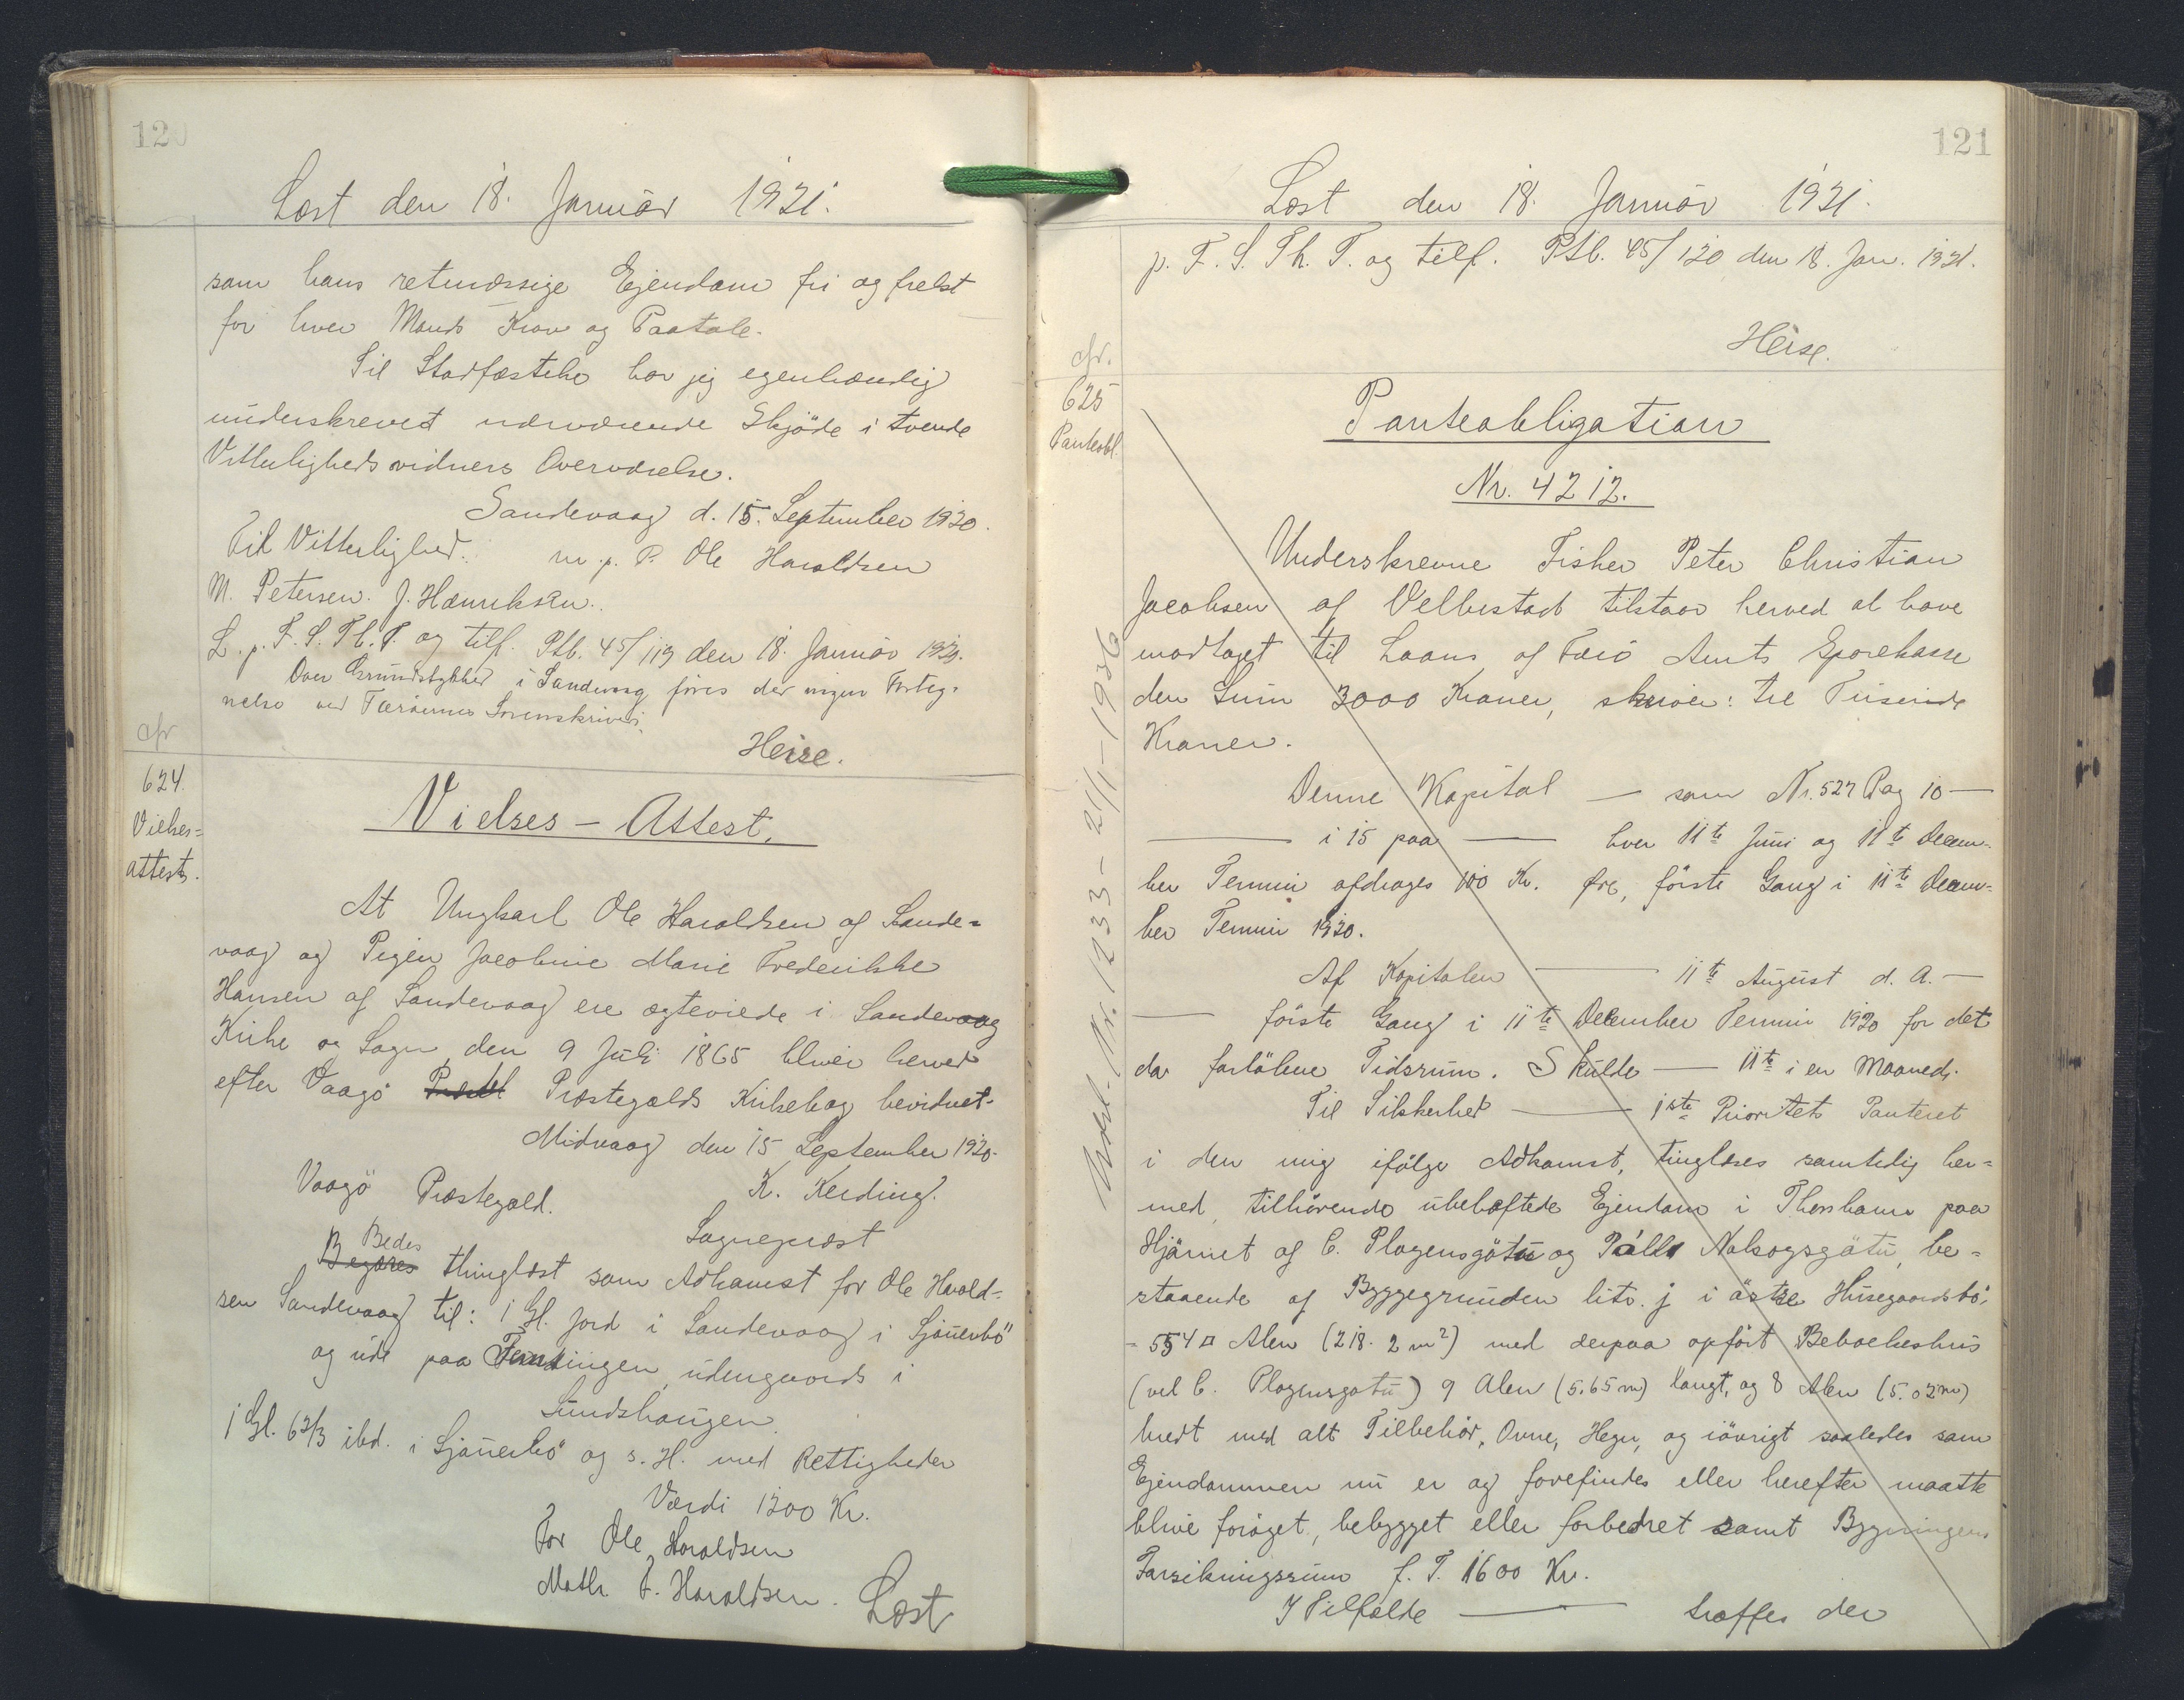 120
Læst den 18. Januar 1921.
som hans retmæssige Ejendom fri og frelst
for hver Mands Krav og Paatale.
Til Stadfæstelse har jeg egenhændig
underskrevet nærværende Skjöde i tvende
Vitterlighedsvidners Overværelse.
Sandevaag d. 15. September 1920.
Til Vitterlighed. m. p. P. Ole Haraldsen
M. Petersen. J. Hænriksen.
L. p. F. S. Th. T. og tilf. Ptb. 45/119 den 18. Januar 1921.
Over Grundstykker i Sandevaag föres der ingen Forteg-
nelse ved Færöernes Sorenskriveri.
Heise.
cfr
624.
Vielses=
attest.
Vielses-Attest.
At Ungkarl Ole Haraldsen af Sande=
vaag og Pigen Jacobine Marie Frederikke
Hansen af Sandevaag ere ægteviede i Sandevaag
Kirke og Sogn den 9 Juli 1865 bliver herved
efter Vaagö Præstegælds Kirkebog bevidnet.
Midvaag den 15 September 1920.
Vaagö Præstegæld. K. Kerding.
Sognepræst
Bedes
Begæres thinglæst som Adkomst for Ole Harald=
sen Sandevaag til: 1 Gl. Jord i Sandevaag i Sjöuerbö
og ude paa udengaards i
Sundshaugen
1 Gl. 6 2/3 ibd. i Sjöuerbö og s. H. med Rettigheder
Værdi 1200 Kr.
For Ole Haraldsen
Math. F. Haraldsen.
Læst
121
Læst den 18. Januar 1921.
p. F. S. Th. T. og tilf. Ptb. 45/120 den 18. Jan. 1921.
Heise.
cfr.
625
Panteobl.
Panteobligation
Nr. 4212.
Underskrevne Fisker Peter Christian
Jacobsen af Velbestad tilstaar herved at have
modtaget til Laans af Færö Amts Sparekasse
den Sum 3000 Kroner, skriver: tre Tusinde
Kroner.
Denne Kapital — som Nr. 527 Pag 10 —
— i 15 paa — hver 11te Juni og 11te Decem-
ber Termin afdrages 100 Kr. Øre, förste Gang i 11te Decem=
ber Termin 1920.
Af Kapitalen — 11te August d. A. —
— förste Gang i 11te December Termin 1920 for det
da forlöbne Tidsrum. Skulde — 11te i en Maaned.
Til Sikkerhed — 1ste Prioritets Panteret
i den mig ifölge Adkomst, tinglæses samtidig her=
med, tilhörende ubehæftede Ejendom i Thorshavn paa
Hjörnet af C. Plogensgötu og Pálls Nolsogsgötu, be=
staaende af Byggegrunden litr. j i östre Husegaardsbö,
- 554 □ Alen (218. 2 m²) med derpaa opfört Beboelseshus
(ved C. Plogensgötu) 9 Alen (5.65 m) langt, og 8 Alen (5.02 m)
bredt med alt Tilbehör, Ovne, Hegn, og iövrigt saaledes som
Ejendommen nu er og forefindes eller herefter maatte
blive foröget, bebygget eller forbedret samt Bygningens
Forsikringssum f. T. 1600 Kr.
I Tilfælde — træffes der
Udsl. Nr. 1233 - 21/1-1936